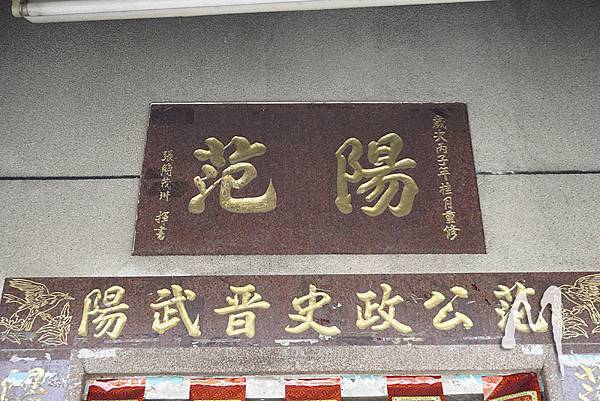 歲次丙子年桂月重修
陽范
張簡茂琳 揮書
范公政史晋武陽